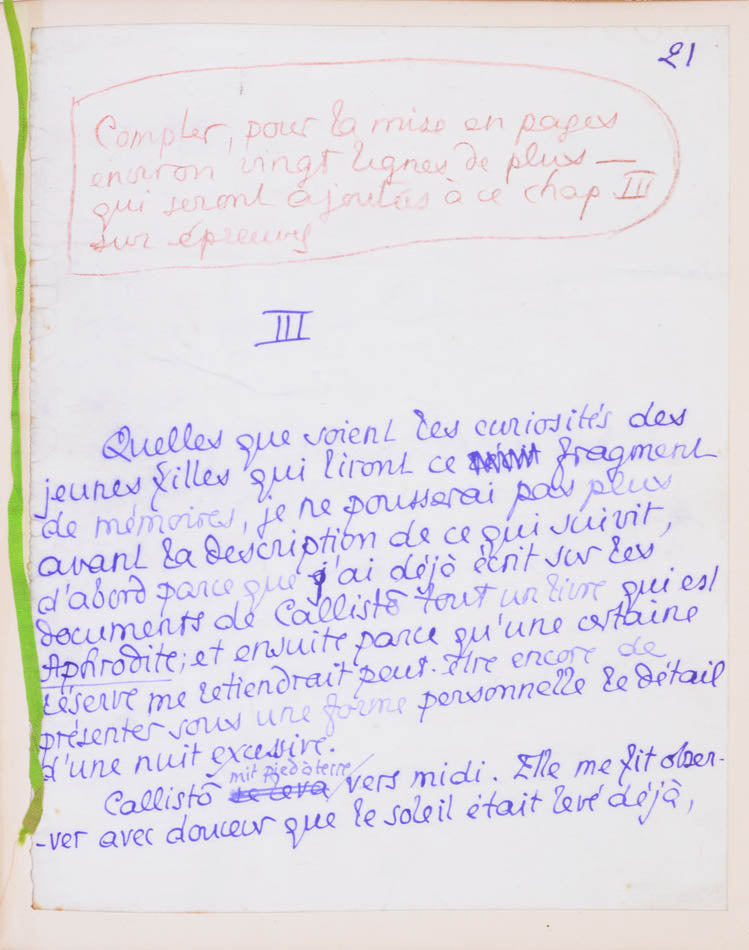 21
Compter, pour la mise en pages
environ vingt lignes de plus —
qui seront ajoutées à ce chap III
sur épreuves
III
Quelles que soient les curiosités des
jeunes filles qui liront ce fragment
de mémoires, je ne pousserai pas plus
avant la description de ce qui suivit,
d'abord parce que j'ai déjà écrit sur les
documents de Callistô tout un livre qui est
Aphrodite; et ensuite parce qu'une certaine
réserve me retiendrait peut-être encore de
présenter sous une forme personnelle le détail
d'une nuit excessive.
mit pied à terre
Callistô se leva vers midi. Elle me fit obser-
-ver avec douceur que le soleil était levé déjà,